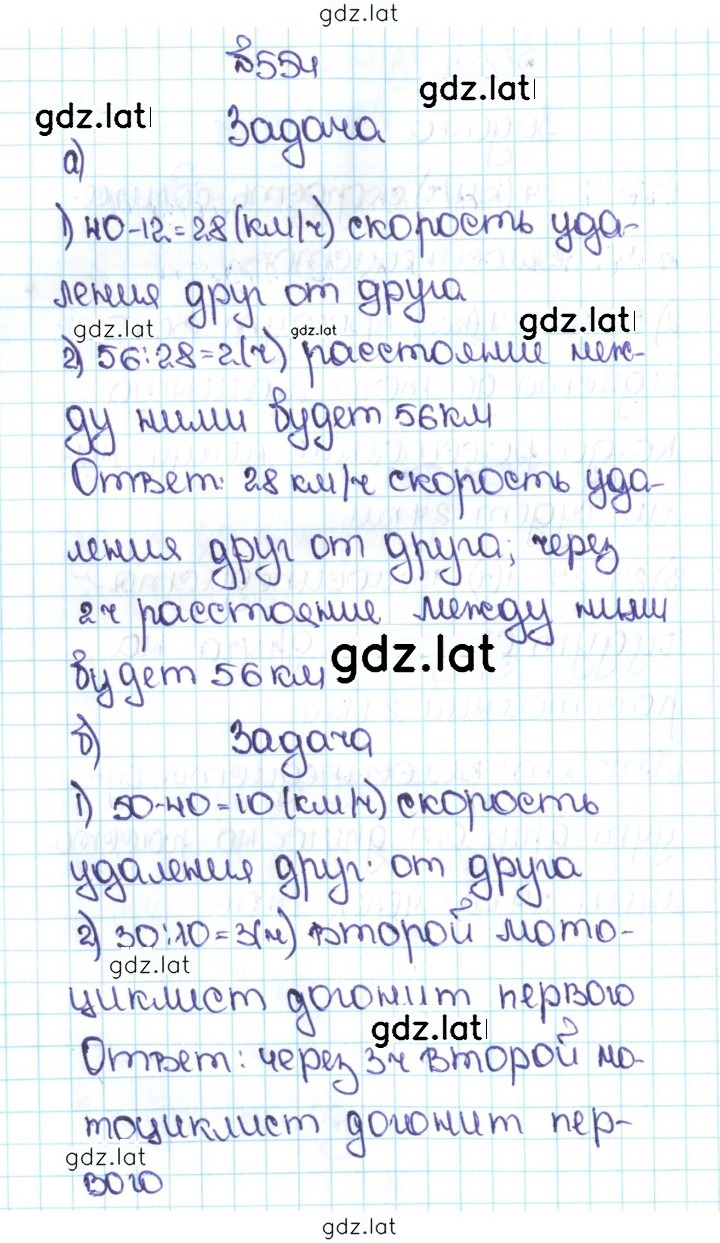 gdz.lat
№554
gdz.lat
gdz.lat
Задача
а)
1) 40-12=28(км/ч) скорость уда-
ления друг от друга
gdz.lat gdz.lat gdz.lat
2) 56:28=2(ч) расстояние меж-
ду ними будет 56км
Ответ: 28 км/ч скорость уда-
ления друг от друга; через
2ч расстояние между ними
будет 56км
gdz.lat
б) Задача
1) 50-40=10(км/ч) скорость
удаления друг от друга
2) 30:10=3(ч) второй мото-
gdz.lat
циклист догонит первого
gdz.lat
Ответ: через 3ч второй мо-
тоциклист догонит пер-
gdz.lat
вого
gdz.lat